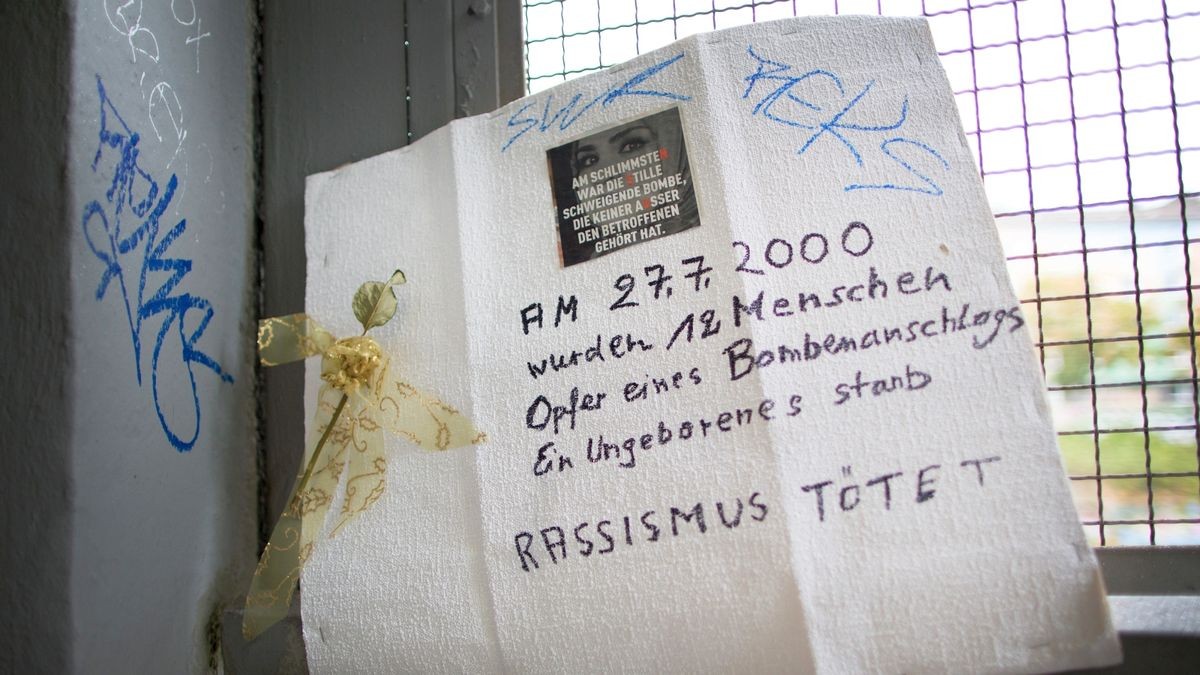 SWK
REKS
AM SCHLIMMSTEN
WAR DIE STILLE
SCHWEIGENDE BOMBE,
DIE KEINER AUSSER
DEN BETROFFENEN
GEHÖRT HAT.
AM 27.7. 2000
wurden 12 Menschen
Opfer eines Bombenanschlags
Ein Ungeborenes starb
RASSISMUS TÖTET